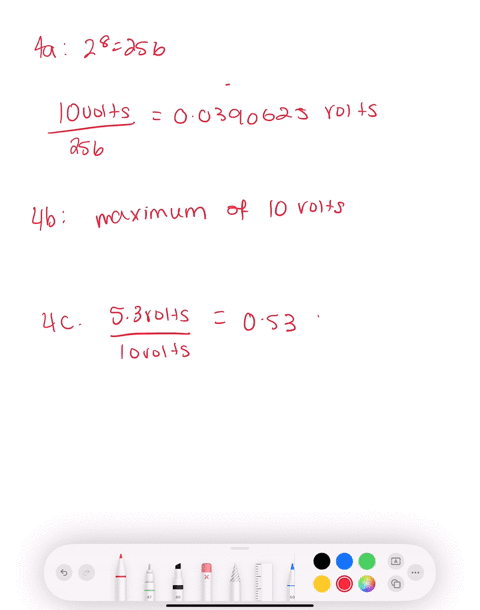 4a: 2⁸=256
10volts = 0.0390625 volts
256
4b: maximum of 10 volts
4c. 5.3volts = 0.53
10volts